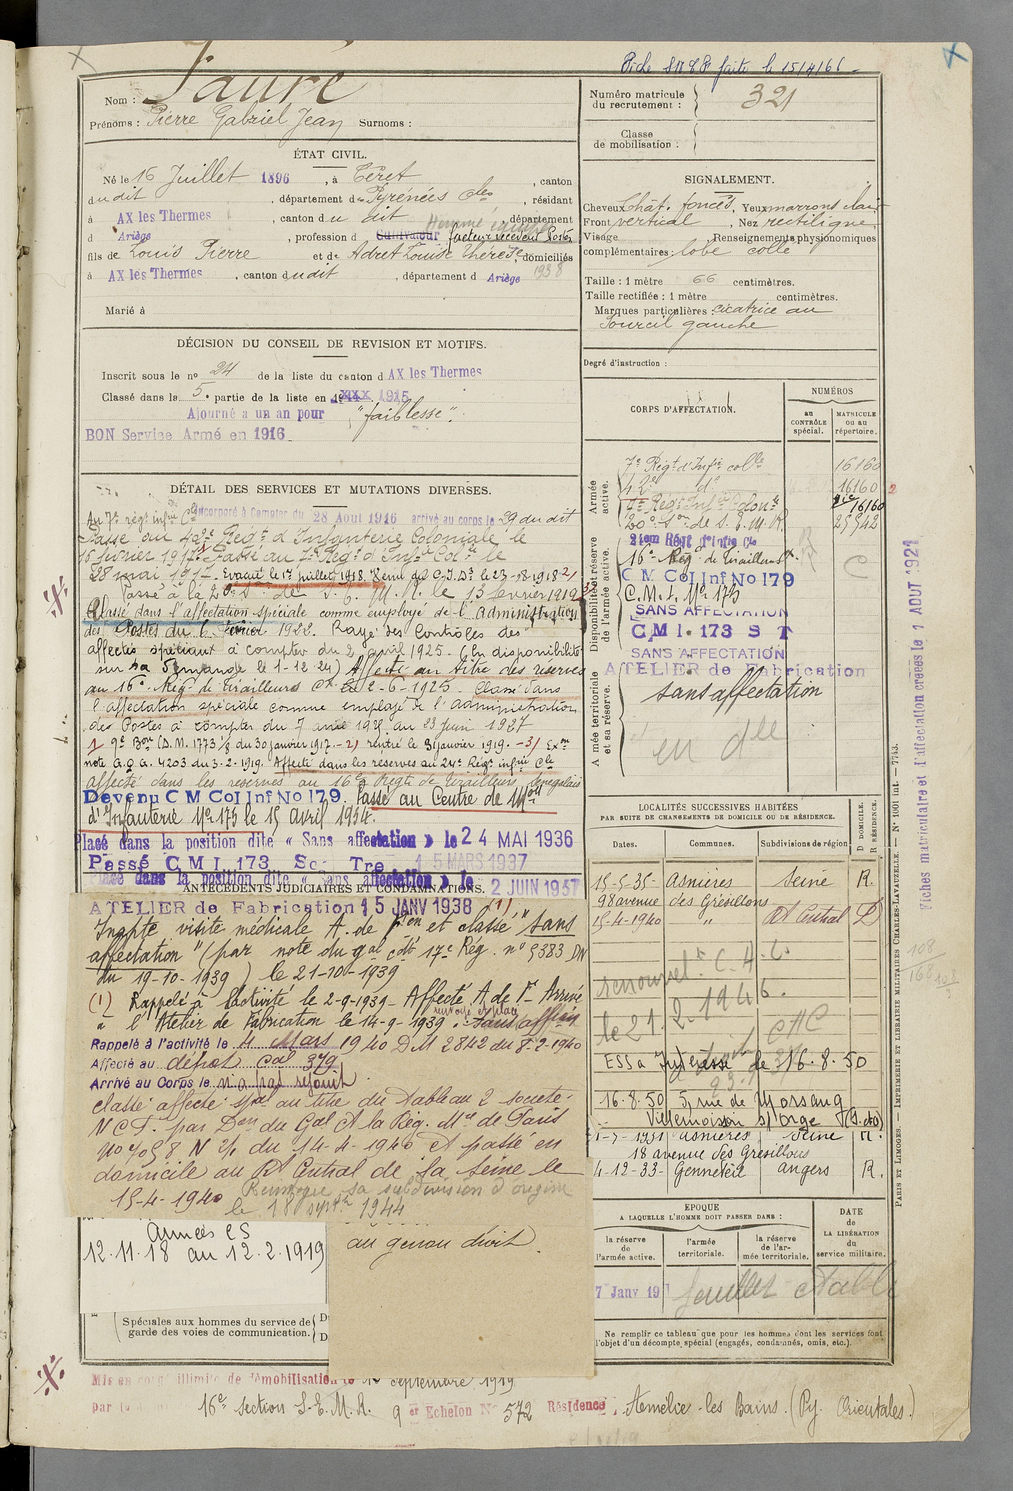 Fiche S.M.&P. faite le 15/4/66
Nom : Faure
Prénoms : Pierre Gabriel Jean Surnoms :
Numéro matricule
du recrutement : 321
Classe
de mobilisation :
ÉTAT CIVIL.
Né le 16 Juillet 1896, à Céret, canton
dudit, département des Pyrénées Oles, résidant
à AX les Thermes, canton du dit, département
d Ariège, profession d Cultivateur facteur receveur Postes
fils de Louis Pierre et de Adret Louise Thérèse, domiciliés
à AX les Thermes, canton dudit, département d Ariège 1938
Marié à
SIGNALEMENT.
Cheveux Chât. foncés, Yeux marrons clair
Front vertical, Nez rectiligne
Visage Renseignements physionomiques
complémentaires : lobe collé
Taille : 1 mètre 66 centimètres.
Taille rectifiée : 1 mètre centimètres.
Marques particulières : cicatrice au
sourcil gauche
Degré d'instruction :
DÉCISION DU CONSEIL DE REVISION ET MOTIFS.
Inscrit sous le no 24 de la liste du canton d AX les Thermes
Classé dans la 5e partie de la liste en 1915
Ajourné a un an pour "faiblesse".
BON Service Armé en 1916
CORPS D'AFFECTATION.
NUMÉROS
au
CONTRÔLE
spécial.
MATRICULE
ou au
répertoire.
Armée
active.
7e Régt d'Infie colle 16160
42e do 16160
7e Régt Infie Colonle 16160
20e Son de S.E.M.R. 25842
Disponibilité et réserve
de l'armée active.
24em Régt d'Infie Cle
16e Rég de Tirailleurs
C M Col Inf No 179
C.M.I. No 173
SANS AFFECTATION
C.M.I. 173 S T
SANS AFFECTATION
ATELIER de Fabrication
Armée territoriale
et sa réserve.
sans affectation
DÉTAIL DES SERVICES ET MUTATIONS DIVERSES.
Au 7e régt infie Cle Incorporé à Compter du 28 Août 1916 arrivé au corps le 29 du dit
Passé au 42e Régt d'Infanterie Coloniale le
15 février 1917. Passé au 7e Régt d'Infie Cole le
28 mai 1917. Evacué le 1er juillet 1918. Venu des O.I.De le 23-18-1918 2/
Passé à la 20e Son de S.E.M.R. le 13 février 1919 3/
Classé dans l'affectation spéciale comme employé de l'administration
des Postes du 6 février 1922. Rayé des Contrôles des
affectés spéciaux à compter du 2 avril 1925. (En disponibilité
sur sa demande le 1-12-24) Affecté au titre des réserves
au 16e Rég. de Tirailleurs Cx le 2-6-1925. Classé dans
l'affectation spéciale comme employé de l'administration
des Postes à compter du 7 avril 1925 au 23 Juin 1927
1 9e Bon (D.M. 1773 1/8 du 30 janvier 1917. - 2) rentré le 31 janvier 1919. - 3) Exon
note G.Q.G. 4203 du 3.2.1919. Affecté dans les réserves au 24e Régt infie Cle
affecté dans les réserves au 16e Régt de Tirailleurs Sénégalais
Devenu C M Col Inf No 179. Passé au Centre de Mon
d'Infanterie No 173 le 15 Avril 1934.
Placé dans la position dite « Sans affectation » le 24 MAI 1936
Passé C M I 173 Son Tre 15 MARS 1937
Placé dans la position dite « Sans affectation » le 2 JUIN 1937
ANTÉCÉDENTS JUDICIAIRES ET CONDAMNATIONS.
ATELIER de Fabrication 15 JANV 1938 (1)
Inapte visite médicale A. de Fon et classé "sans
affectation" (par note du gal cdt 17e Rég. no 5383 DN
du 19-10-1939) le 21-10-1939
(1) Rappelé à l'activité le 2-9-1939 - Affecté A. de Fn Arrivé
à l'Atelier de Fabrication le 14-9-1939.
Rappelé à l'activité le 4 Mars 1940 DM 2842 du 8-2-1940
Affecté au dépôt Cal 379
Arrivé au Corps le n'a pas rejoint.
Classé affecté spal au titre du Tableau 2 société
N.C.F. par Don du Gal Ct la Rég. Mre de Paris
No 7058 N 2/1 du 14-4-1940 et passé en
domicile au Rt Central de la Seine le
15-4-1940 Renvoyé sa subdivision d'origine
le 18 septbre 1944
Années CS
12.11.18 au 12.2.1919
au genou droit.
Spéciales aux hommes du service de
garde des voies de communication.
LOCALITÉS SUCCESSIVES HABITÉES
PAR SUITE DE CHANGEMENTS DE DOMICILE OU DE RÉSIDENCE.
Dates. Communes. Subdivisions de région. D DOMICILE. R RÉSIDENCE.
15-5-35- Asnières Seine R.
98 avenue des Grésillons
15-4-1940 " Rt Central D
le 21.2.1946.
16.8.50
16-8-50 5, rue de Morsang
Villemoisson s/ Orge (S. et O)
1-7-1931 Asnières Seine R.
18 avenue des Grésillons
4-12-33- Genneteil Angers R.
ÉPOQUE
A LAQUELLE L'HOMME DOIT PASSER DANS :
la réserve
de
l'armée active.
l'armée
territoriale.
la réserve
de l'ar-
mée territoriale.
DATE
de
LA LIBÉRATION
du
service militaire.
7 Janv 19
feuillet établi
Ne remplir ce tableau que pour les hommes dont les services font
l'objet d'un décompte spécial (engagés, condamnés, omis, etc.).
Mis en congé illimité de démobilisation le 12 septembre 1919
par la 16e section S.E.M.R. 9er Echelon No 572 Résidence : Amélie-les Bains. (Py. Orientales.)
Fiches matriculaire et d'affectation créées le 1 AOUT 1921
PARIS ET LIMOGES. — IMPRIMERIE ET LIBRAIRIE MILITAIRES CHARLES-LAVAUZELLE. — No 1001 int. — 7743.